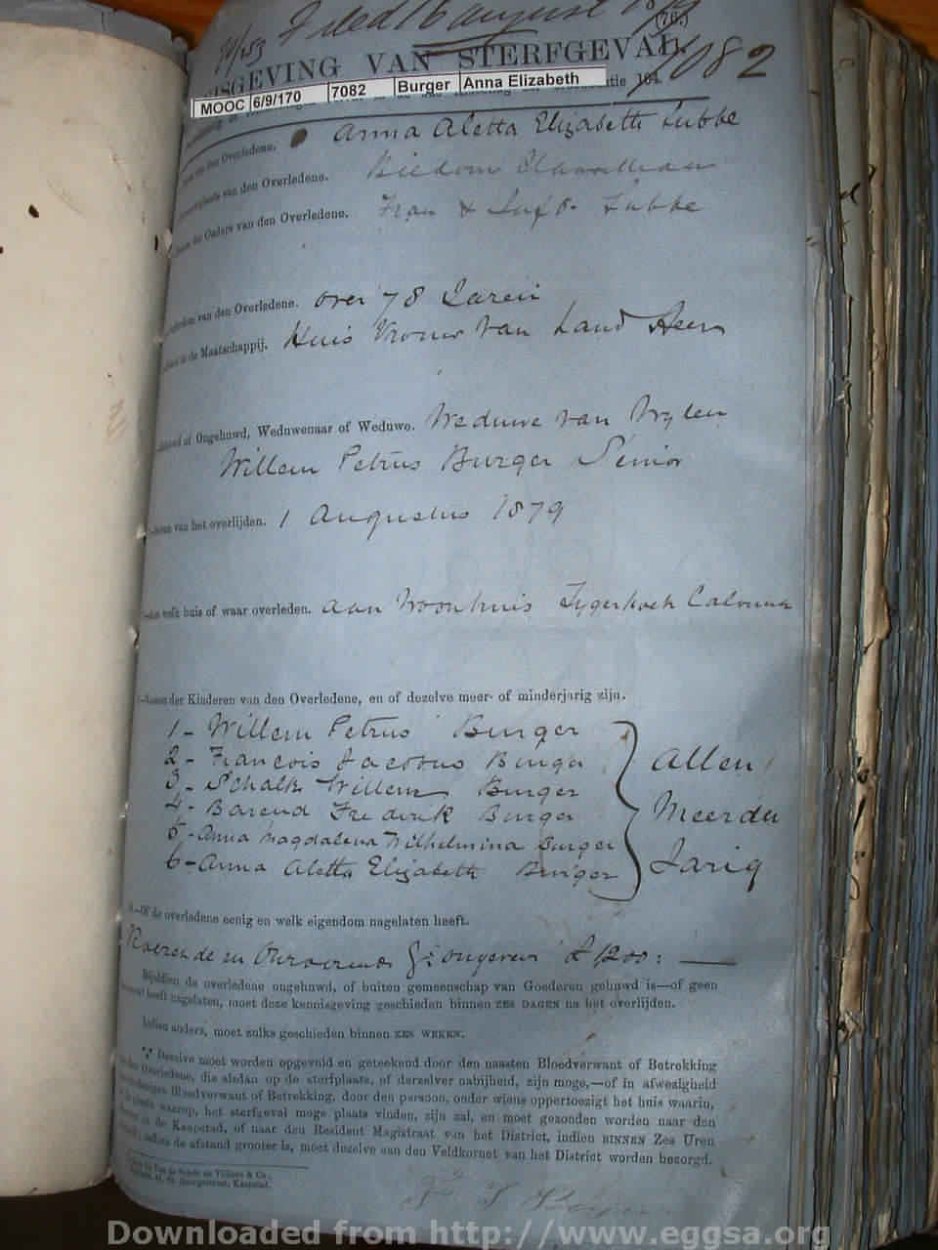 Filed 16 august
7082
VAN STERFGEVAL
MOOC 6/9/170 7082 Burger Anna Elizabeth
van den Overledene. Anna Aletta Elizabeth Lubbe
van den Overledene.
de Ouders van den Overledene. Lubbe
van den Overledene. over 78 Jaren
in de Maatschappij. Huis Vrouw van Land Heer
of Ongehuwd, Weduwenaar of Weduwe. Weduwe van Wylen
Willem Petrus Burger Senior
van het overlijden. 1 Augustus 1879
welk huis of waar overleden. aan Woonhuis Tygerhoek
der Kinderen van den Overledene, en of dezelve meer- of minderjarig zijn.
1- Willem Petrus Burger
2- Francois Jacobus Burger
3- Schalk Willem Burger
4- Barend Frederik Burger
5- Anna Magdalena Wilhelmina Burger
6- Anna Aletta Elizabeth Burger
Allen
Meerder
Jarig
Of de overledene eenig en welk eigendom nagelaten heeft.
Roerende en Onroerende £1200:
Bijaldien de overledene ongehuwd, of buiten gemeenschap van Goederen gehuwd is—of geen
heeft nagelaten, moet deze kennisgeving geschieden binnen ZES DAGEN na het overlijden.
Indien anders, moet zulks geschieden binnen ZES WEKEN.
Dezelve moet worden opgevuld en geteekend door den naasten Bloedverwant of Betrekking
Overledene, die alsdan op de sterfplaats, of derzelver nabijheid, zijn moge,—of in afwezigheid
Bloedverwant of Betrekking, door den persoon, onder wiens oppertoezigt het huis waarin,
waarop, het sterfgeval moge plaats vinden, zijn zal, en moet gezonden worden naar den
in de Kaapstad, of naar den Resident Magistraat van het District, indien BINNEN Zes Uren
de afstand grooter is, moet dezelve aan den Veldkornet van het District worden bezorgd.
Downloaded from http://www.eggsa.org